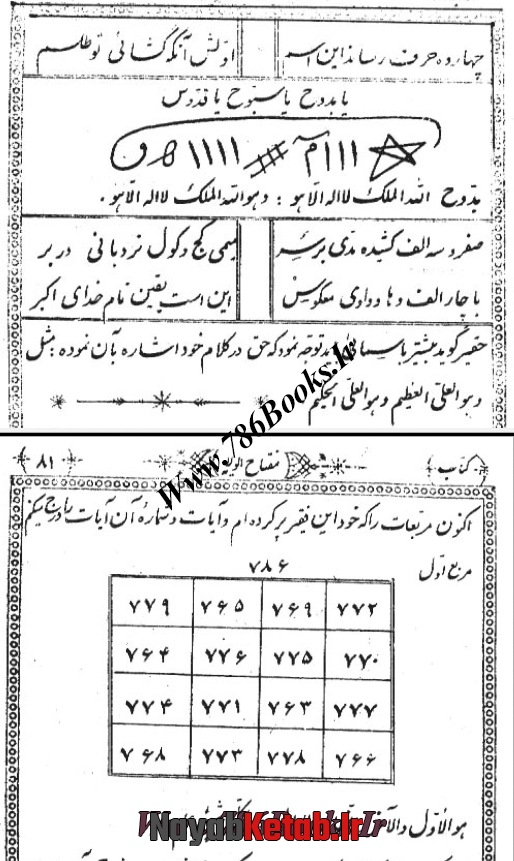 چهارده حرف رساند این اسم اولش آنگه گشائی تو طلسم
یا بدوح یا سبوح یا قدوس
بدوح الله الملک لا اله الا هو : وهو الله الملک لا اله الا هو .
صفر و سه الف کشیده مدی بر سر میمی کج و کول نردبانی در بر
با چار الف و ها و واوی معکوس این است یقین نام خدای اکبر
حقیر گوید بیشتر باسماء توجه نمود که حق در کلام خود اشاره بآن نموده : مثل
وهو العلی العظیم وهو العلی الحکیم
www.786Books.Ir
کتاب مفتاح ۸۱
اکنون مربعات را که خود این فقیر پر کرده ام و آیات و شماره آن آیات را درج میکنم
مربع اول ۷۸۶
۷۷۹ ۷۶۵ ۷۶۹ ۷۷۲
۷۶۴ ۷۷۶ ۷۷۵ ۷۷۰
۷۷۴ ۷۷۱ ۷۶۳ ۷۷۷
۷۶۸ ۷۷۳ ۷۷۸ ۷۶۶
هو الاول والآخر
NayabKetab.Ir